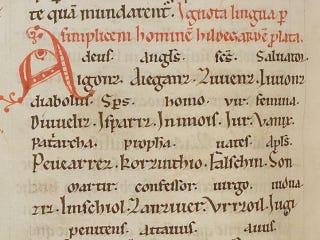 te quā mundarent. Ignota lingua ꝑ
simplicem hominē hildegardē plata.
deus. angls. scs̄. Saluator.
Aigonz. Aieganz. Zuuenz. Liuionz
diabolus. Sp̄s. homo. vir. femina.
Diuueliz. Isparriz. Inimois. Iur. Vanix.
Patarcha. ꝓpha. uates. apls.
Peuearrez. Korzinthio. Falschin. Son
martir. confessor. uirgo. mona
ziz. Linschiol. Zanziuer. Vrrizoil. Iugi
penitens. attauus. auus.